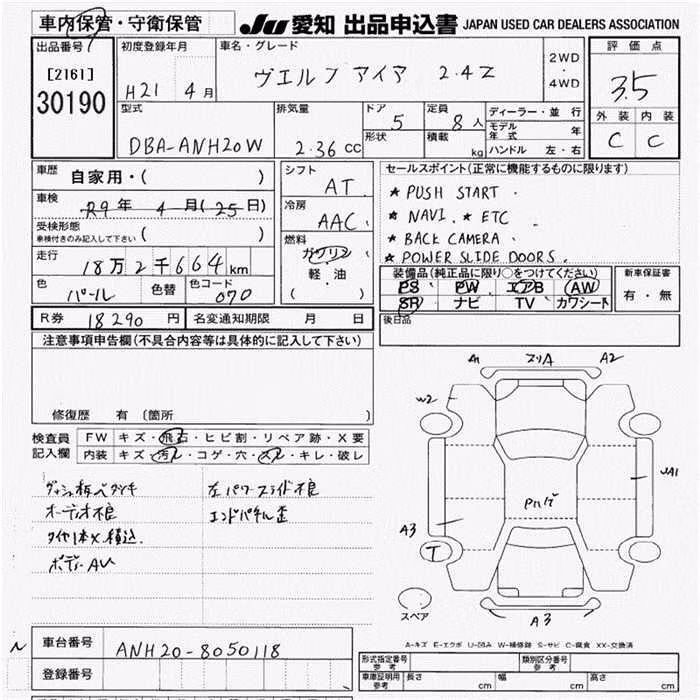 車内保管・守衛保管 JU 愛知 出品申込書 JAPAN USED CAR DEALERS ASSOCIATION
出品番号 初度登録年月 車名・グレード 2WD・4WD 評価点
[2161] H21 4月 ヴェルファイア 2.4Z 3.5
30190 型式 排気量 ドア 定員 ディーラー・並行 外装 内装
DBA-ANH20W 2.36 CC 5 8人 モデル年式 年 C C
形状 積載 kg ハンドル 左・右
車歴 自家用・( ) シフト AT セールスポイント(正常に機能するものに限ります)
車検 R9年 4月(25日) 冷房 AAC ★ PUSH START
受検形態 ( ) ★ NAVI. ★ ETC
車検付きのみ記入して下さい 燃料 ガソリン ★ BACK CAMERA
走行 18万2千664km 軽・油 ★ POWER SLIDE DOORS.
色 パール 色替 色コード 070 ( ) 装備品(純正品に限り○をつけてください) 新車保証書
PS PW エアB AW 有・無
SR ナビ TV カワシート
R券 18290円 名変通知期限 月 日 後日品
注意事項申告欄(不具合内容等は具体的に記入して下さい)
修復歴 有 〔箇所 〕
検査員 FW キズ・飛石・ヒビ割・リペア跡・X要
記入欄 内装 キズ・汚レ・コゲ・穴・スレ・キレ・破レ
A1 スリA A2
W2
UA1
Pハゲ
A3
T
スペア
A3
ダッシュ板ベタツキ 左パワースライド不良
オーディオ不良 エンドパネル歪
タイヤ1本X積込.
ボディーAU
A-キズ E-エクボ U-凹み W-補修跡 S-サビ C-腐食 XX-交換済
N 車台番号 ANH20-8050118
登録番号
形式指定番号 参考 類別区分番号 参考
車庫証明用 参考 長さ cm 幅 cm 高さ cm